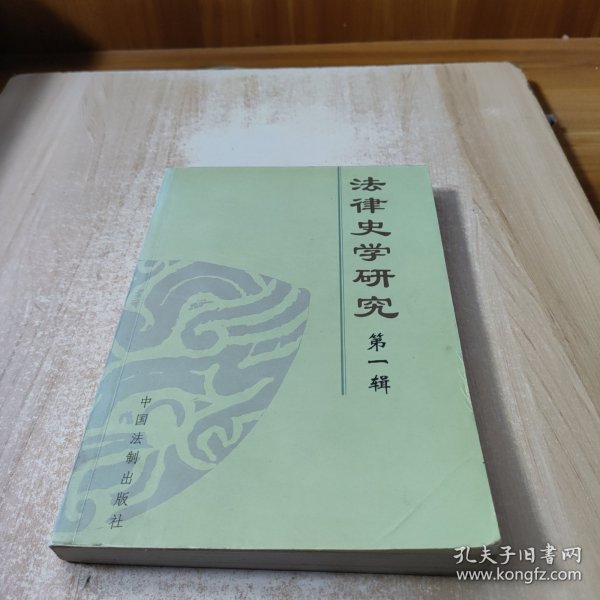 法律史学研究
第一辑
中国法制出版社
孔夫子旧書网
www.kongfz.com